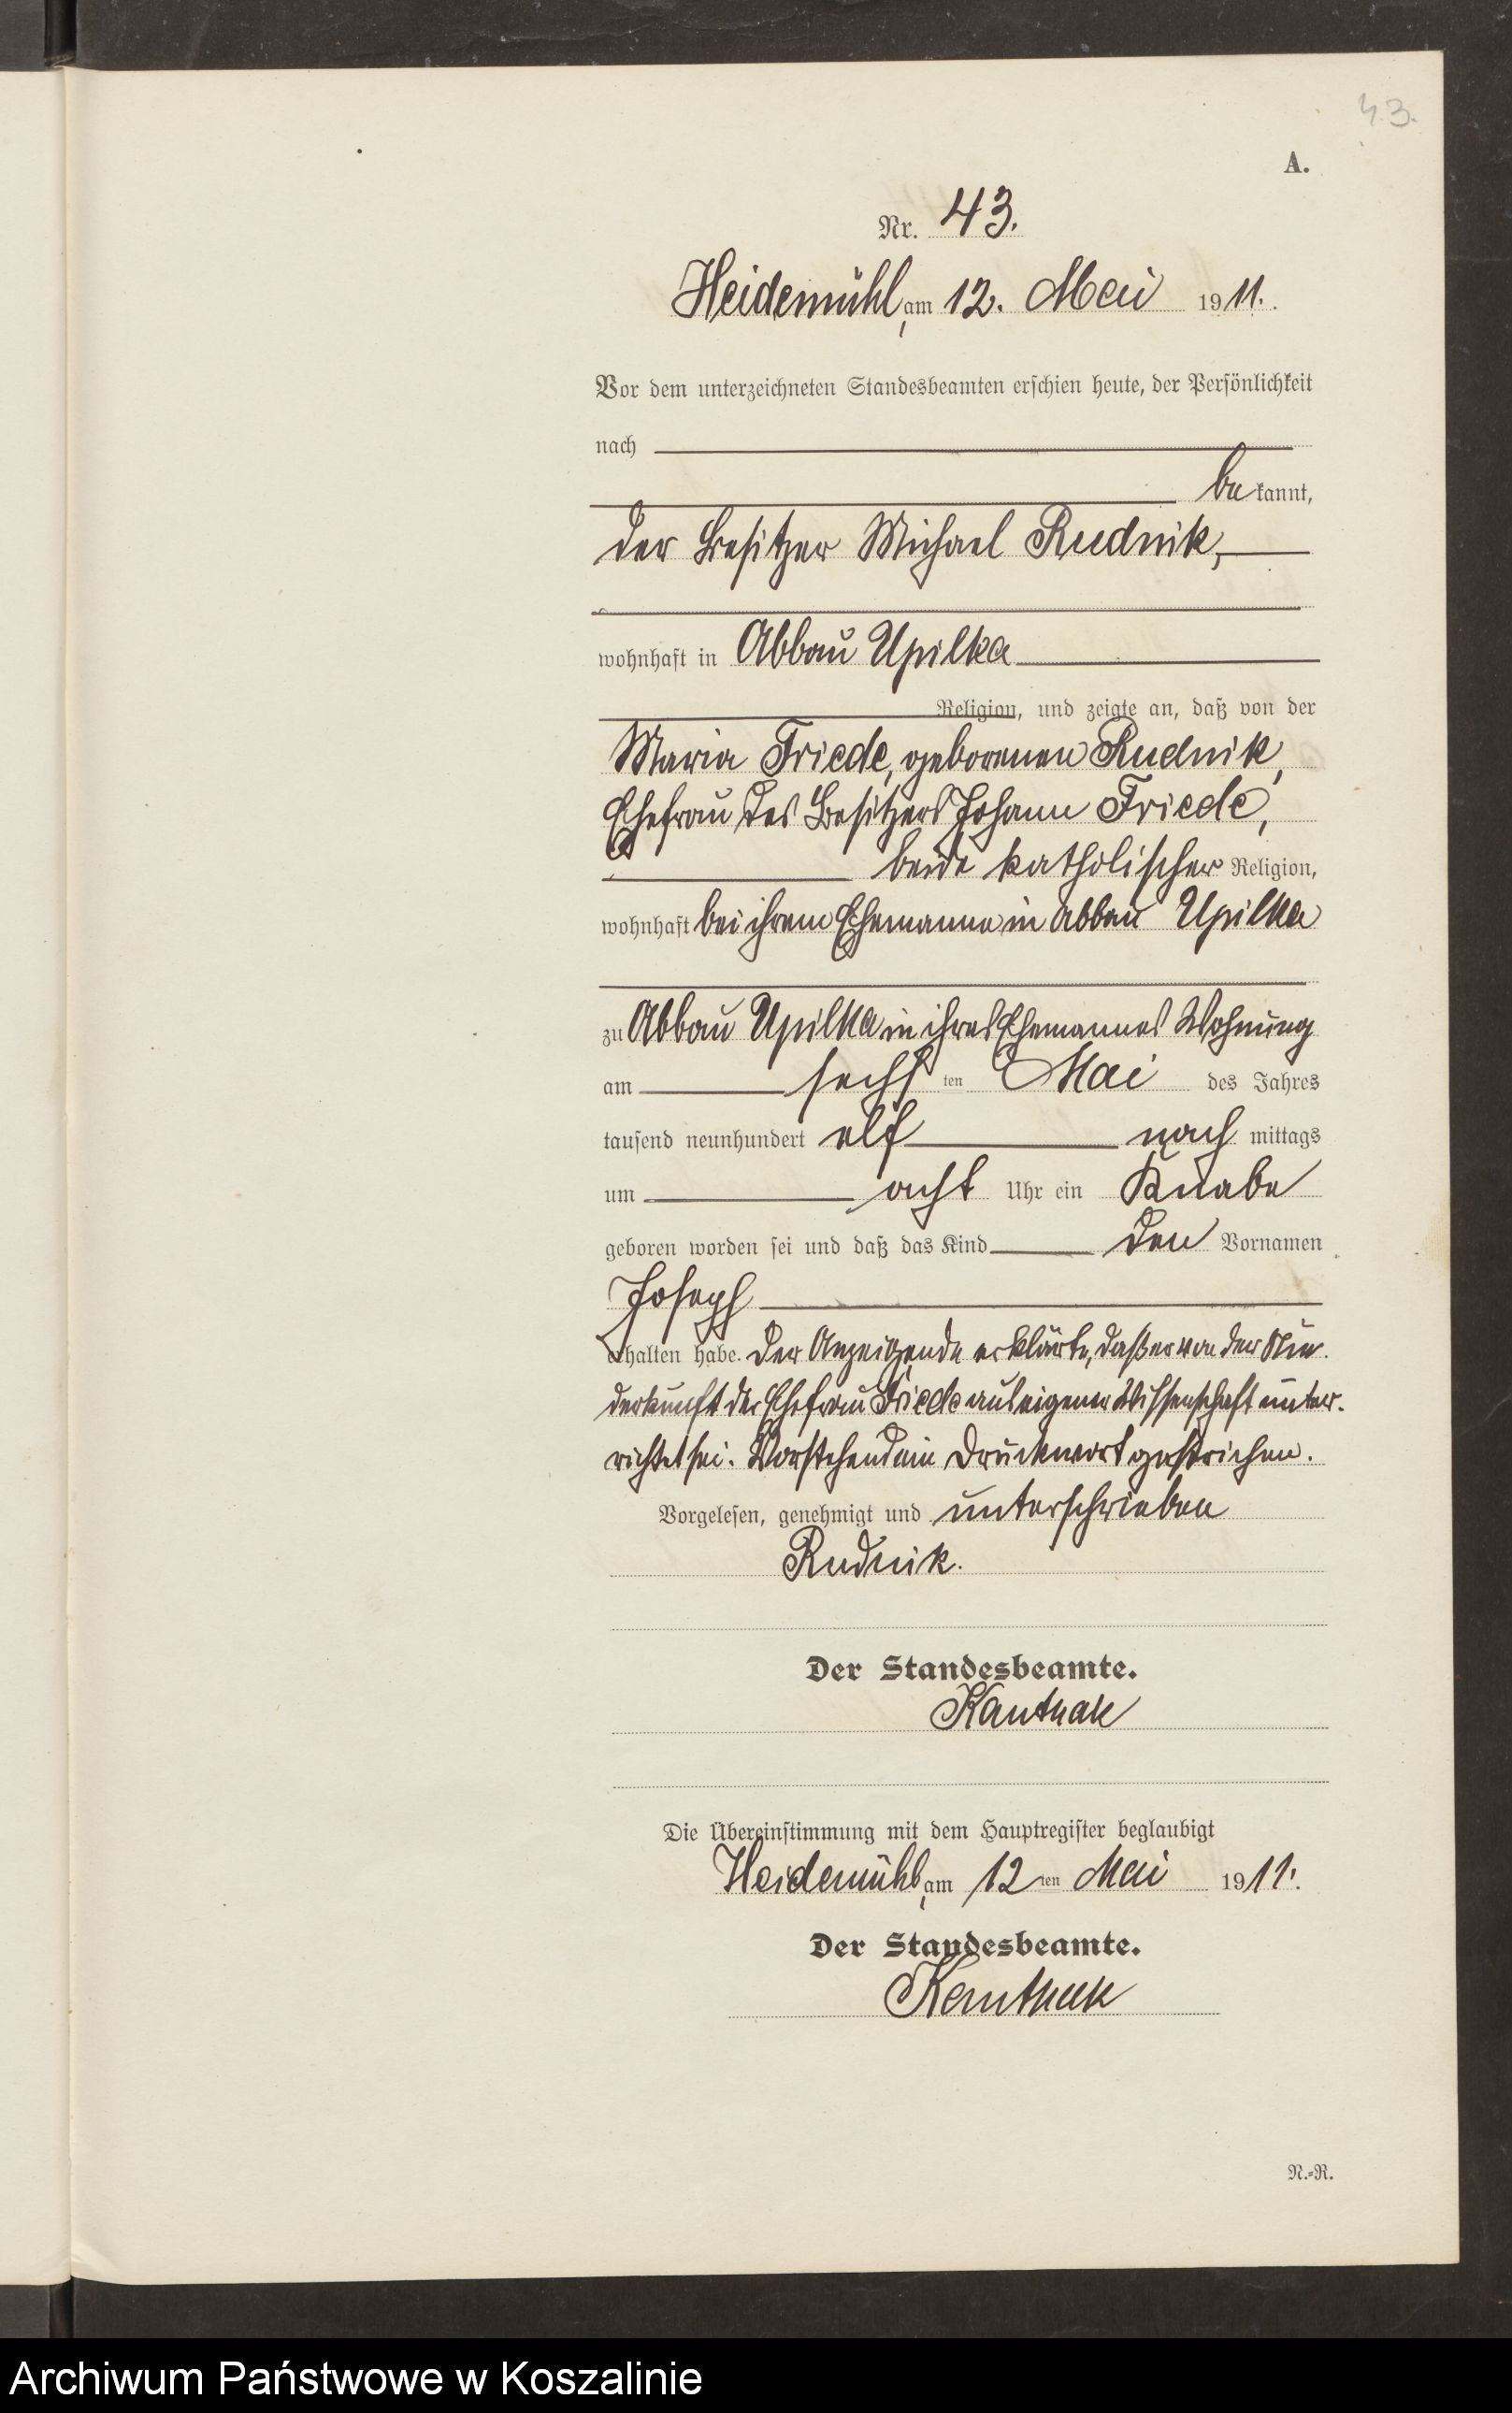 43.
A.
Nr. 43.
Heidemühl, am 12. Mai 1911.
Vor dem unterzeichneten Standesbeamten erschien heute, der Persönlichkeit
nach
be kannt,
der Besitzer Michael Rudnik,
wohnhaft in Abbau Upilka
Religion, und zeigte an, daß von der
Maria Friede, geborenen Rudnik,
Ehefrau des Besitzers Johann Friede,
beide katholischer Religion,
wohnhaft bei ihrem Ehemanne in Abbau Upilka
zu Abbau Upilka in ihres Ehemannes Wohnung
am sechs ten Mai des Jahres
tausend neunhundert elf nach mittags
um acht Uhr ein Knabe
geboren worden sei und daß das Kind den Vornamen
Joseph
erhalten habe. Der Anzeigende erklärte, daß er von der Nie-
derkunft der Ehefrau Friede aus eigener Wissenschaft unter-
richtet sei. Vorstehend ein Druckwort gestrichen.
Vorgelesen, genehmigt und unterschrieben
Rudnik.
Der Standesbeamte.
Kanthak
Die Übereinstimmung mit dem Hauptregister beglaubigt
Heidemühl, am 12 ten Mai 1911.
Der Standesbeamte.
Kanthak
N.-R.
Archiwum Państwowe w Koszalinie